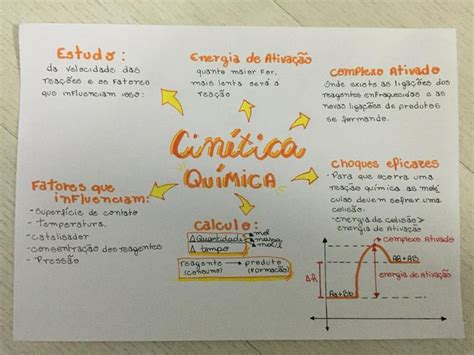 Estudo:
da velocidade das
reações e os fatores
que influenciam isso:
Energia de Ativação
quanto maior for,
mais lenta será a
reação
complexo Ativado
Onde existe as ligações dos
reagentes enfraquecidas e as
novas ligações de produtos
se formando.
Cinética
Química
Fatores que
influenciam:
- Superfície de contato
- Temperatura
- catalisador
- concentração dos reagentes
- Pressão
calculo:
Δ Quantidade
mol
massa
mol/L
Δ tempo
reagente → produto
(consumo) (formação)
choques eficazes
- Para que ocorra uma
reação química as molé
culas devem sofrer uma
colisão.
- energia de colisão >
energia de Ativação
complexo Ativado
AB + AB
energia de Ativação
AA + BB